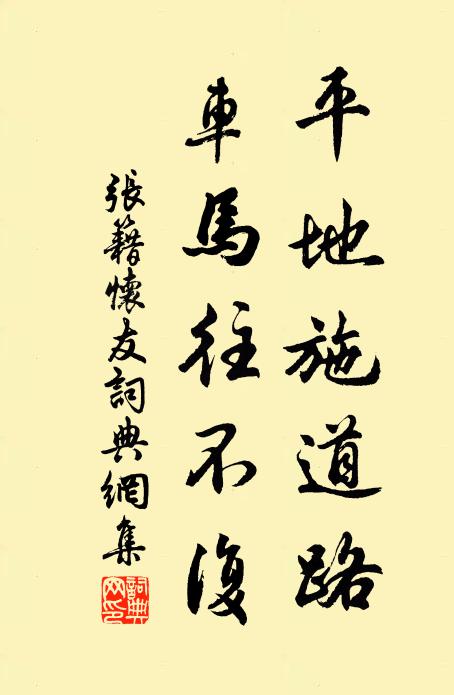 平地施道路
車馬往不復
張籍懷友詞典網集
詞典网印